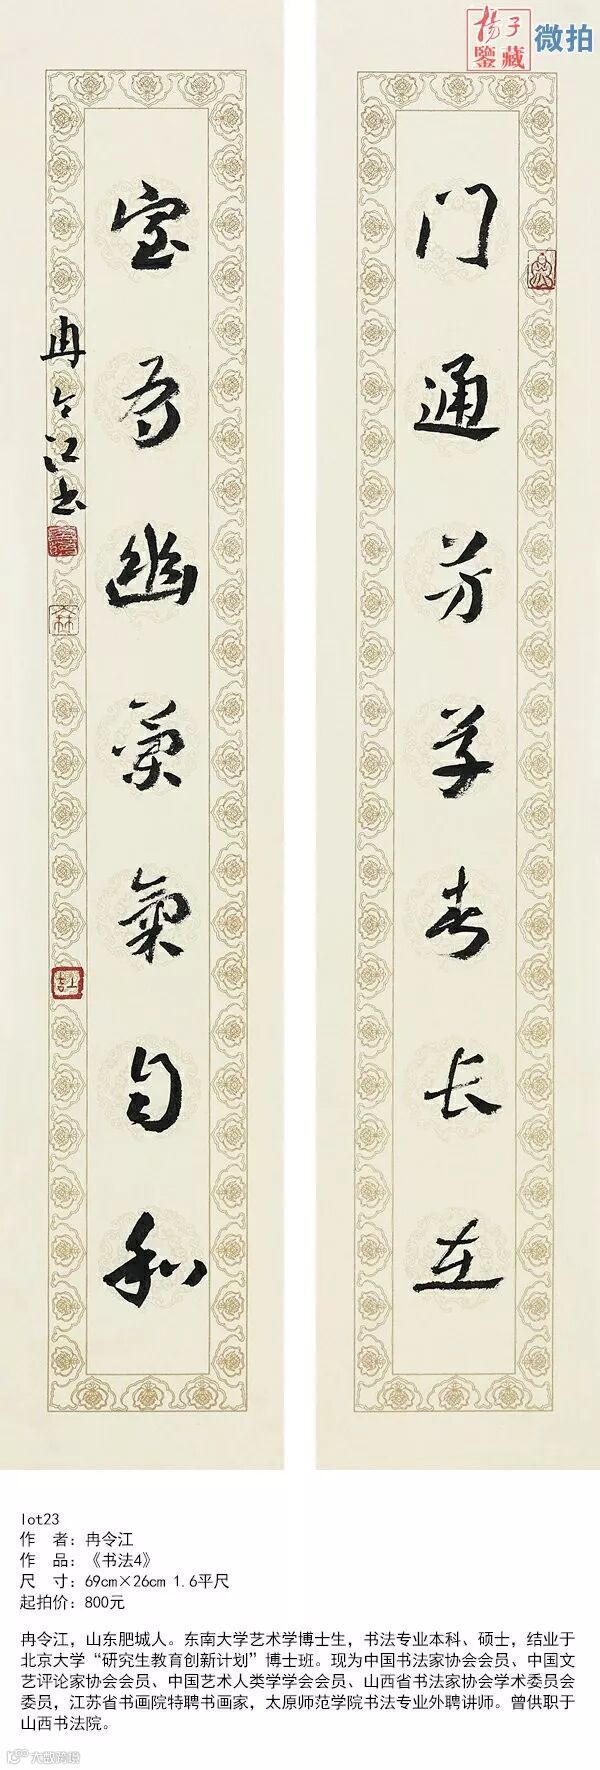 揚子
鑒藏
微拍
门通芳草春长在
室有幽兰氣自和
冉令江书
lot23
作 者：冉令江
作 品：《书法4》
尺 寸：69cm×26cm 1.6平尺
起拍价：800元
冉令江，山东肥城人。东南大学艺术学博士生，书法专业本科、硕士，结业于
北京大学“研究生教育创新计划”博士班。现为中国书法家协会会员、中国文
艺评论家协会会员、中国艺术人类学学会会员、山西省书法家协会学术委员会
委员，江苏省书画院特聘书画家，太原师范学院书法专业外聘讲师。曾供职于
山西书法院。
大数跨境